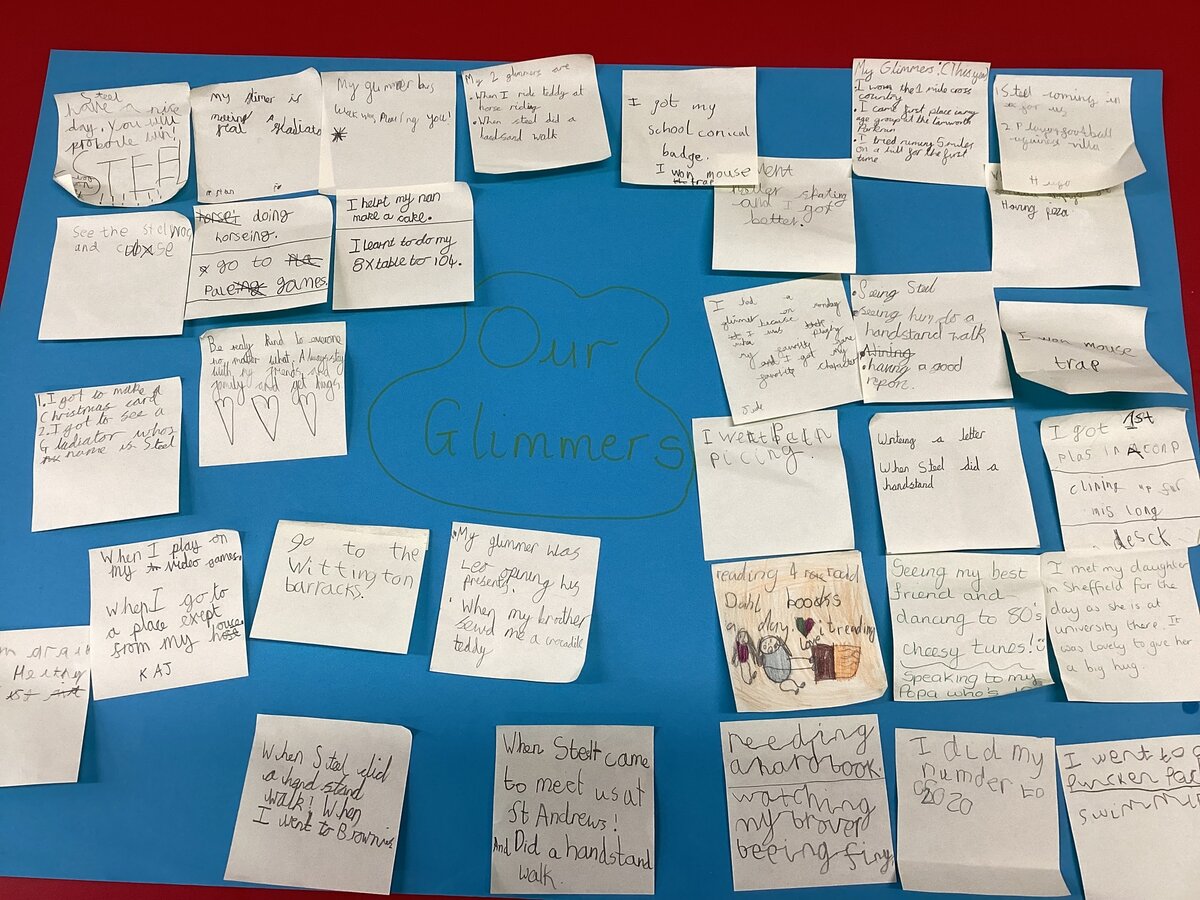 Our
Glimmers
Steel
have a nice
day. You will
probolie win!
STEEL
my glimer is
meeting a Gladiator
steal
My glimmer
was Meeting you!
My 2 glimmers are
• When I ride teddy at
horse riding
• When steel did a
handsand walk
I got my
school conical
badge.
I won mouse
trap
My Glimmers: (This year)
• I won the 1 mile cross
country
• I came first place in my
age group at the Tamworth
Parkrun
• I tried running 5 miles
on a hill for the first
time
1 Steel coming in
for us
2 Playing football
against villa
Hugo
See the
and
horse: doing
horseing.
go to
games.
I helpt my nan
make a cake.
I learnt to do my
8x table to 104.
went
roller skating
and I got
better.
Having
Be realy kind to everyone
no matter what. Always stay
with my friends and
family and get hugs.
I had a
glimmer on sunday
because
I was playing
my favourite game
and I got my
favourite character
Jude
• Seeing Steel
• seeing him do a
handstand walk
• having a good
report.
I won mouse
trap
1. I got to make a
Christmas card
2. I got to see a
Gladiator whos
name is Steel
I went
picing.
Writing a letter
When Steel did a
handstand
I got 1st
plas in A comp
clining up for
mis long
desck
When I play on
my video games.
When I go to
a place exept
from my house
KAJ
go to the
Wittington
barracks.
• My glimmer was
Leo opening his
presents.
• When my brother
sewd me a crocadile
teddy
reading 4 roald
Dahl books
a day. I love reading
Seeing my best
friend and
dancing to 80's
cheesy tunes!
Speaking to my
Popa who's
I met my daughter
in Sheffield for the
day as she is at
university there. It
was lovely to give her
a big hug.
When Steel did
a hand stand
walk! When
I went to Brownies
When Stelt came
to meet us at
St Andrews!
And Did a handstand
walk.
reeding
a hard book.
watching
my brover
beeing finy
I did my
numder to
2020
I went to
swimmi